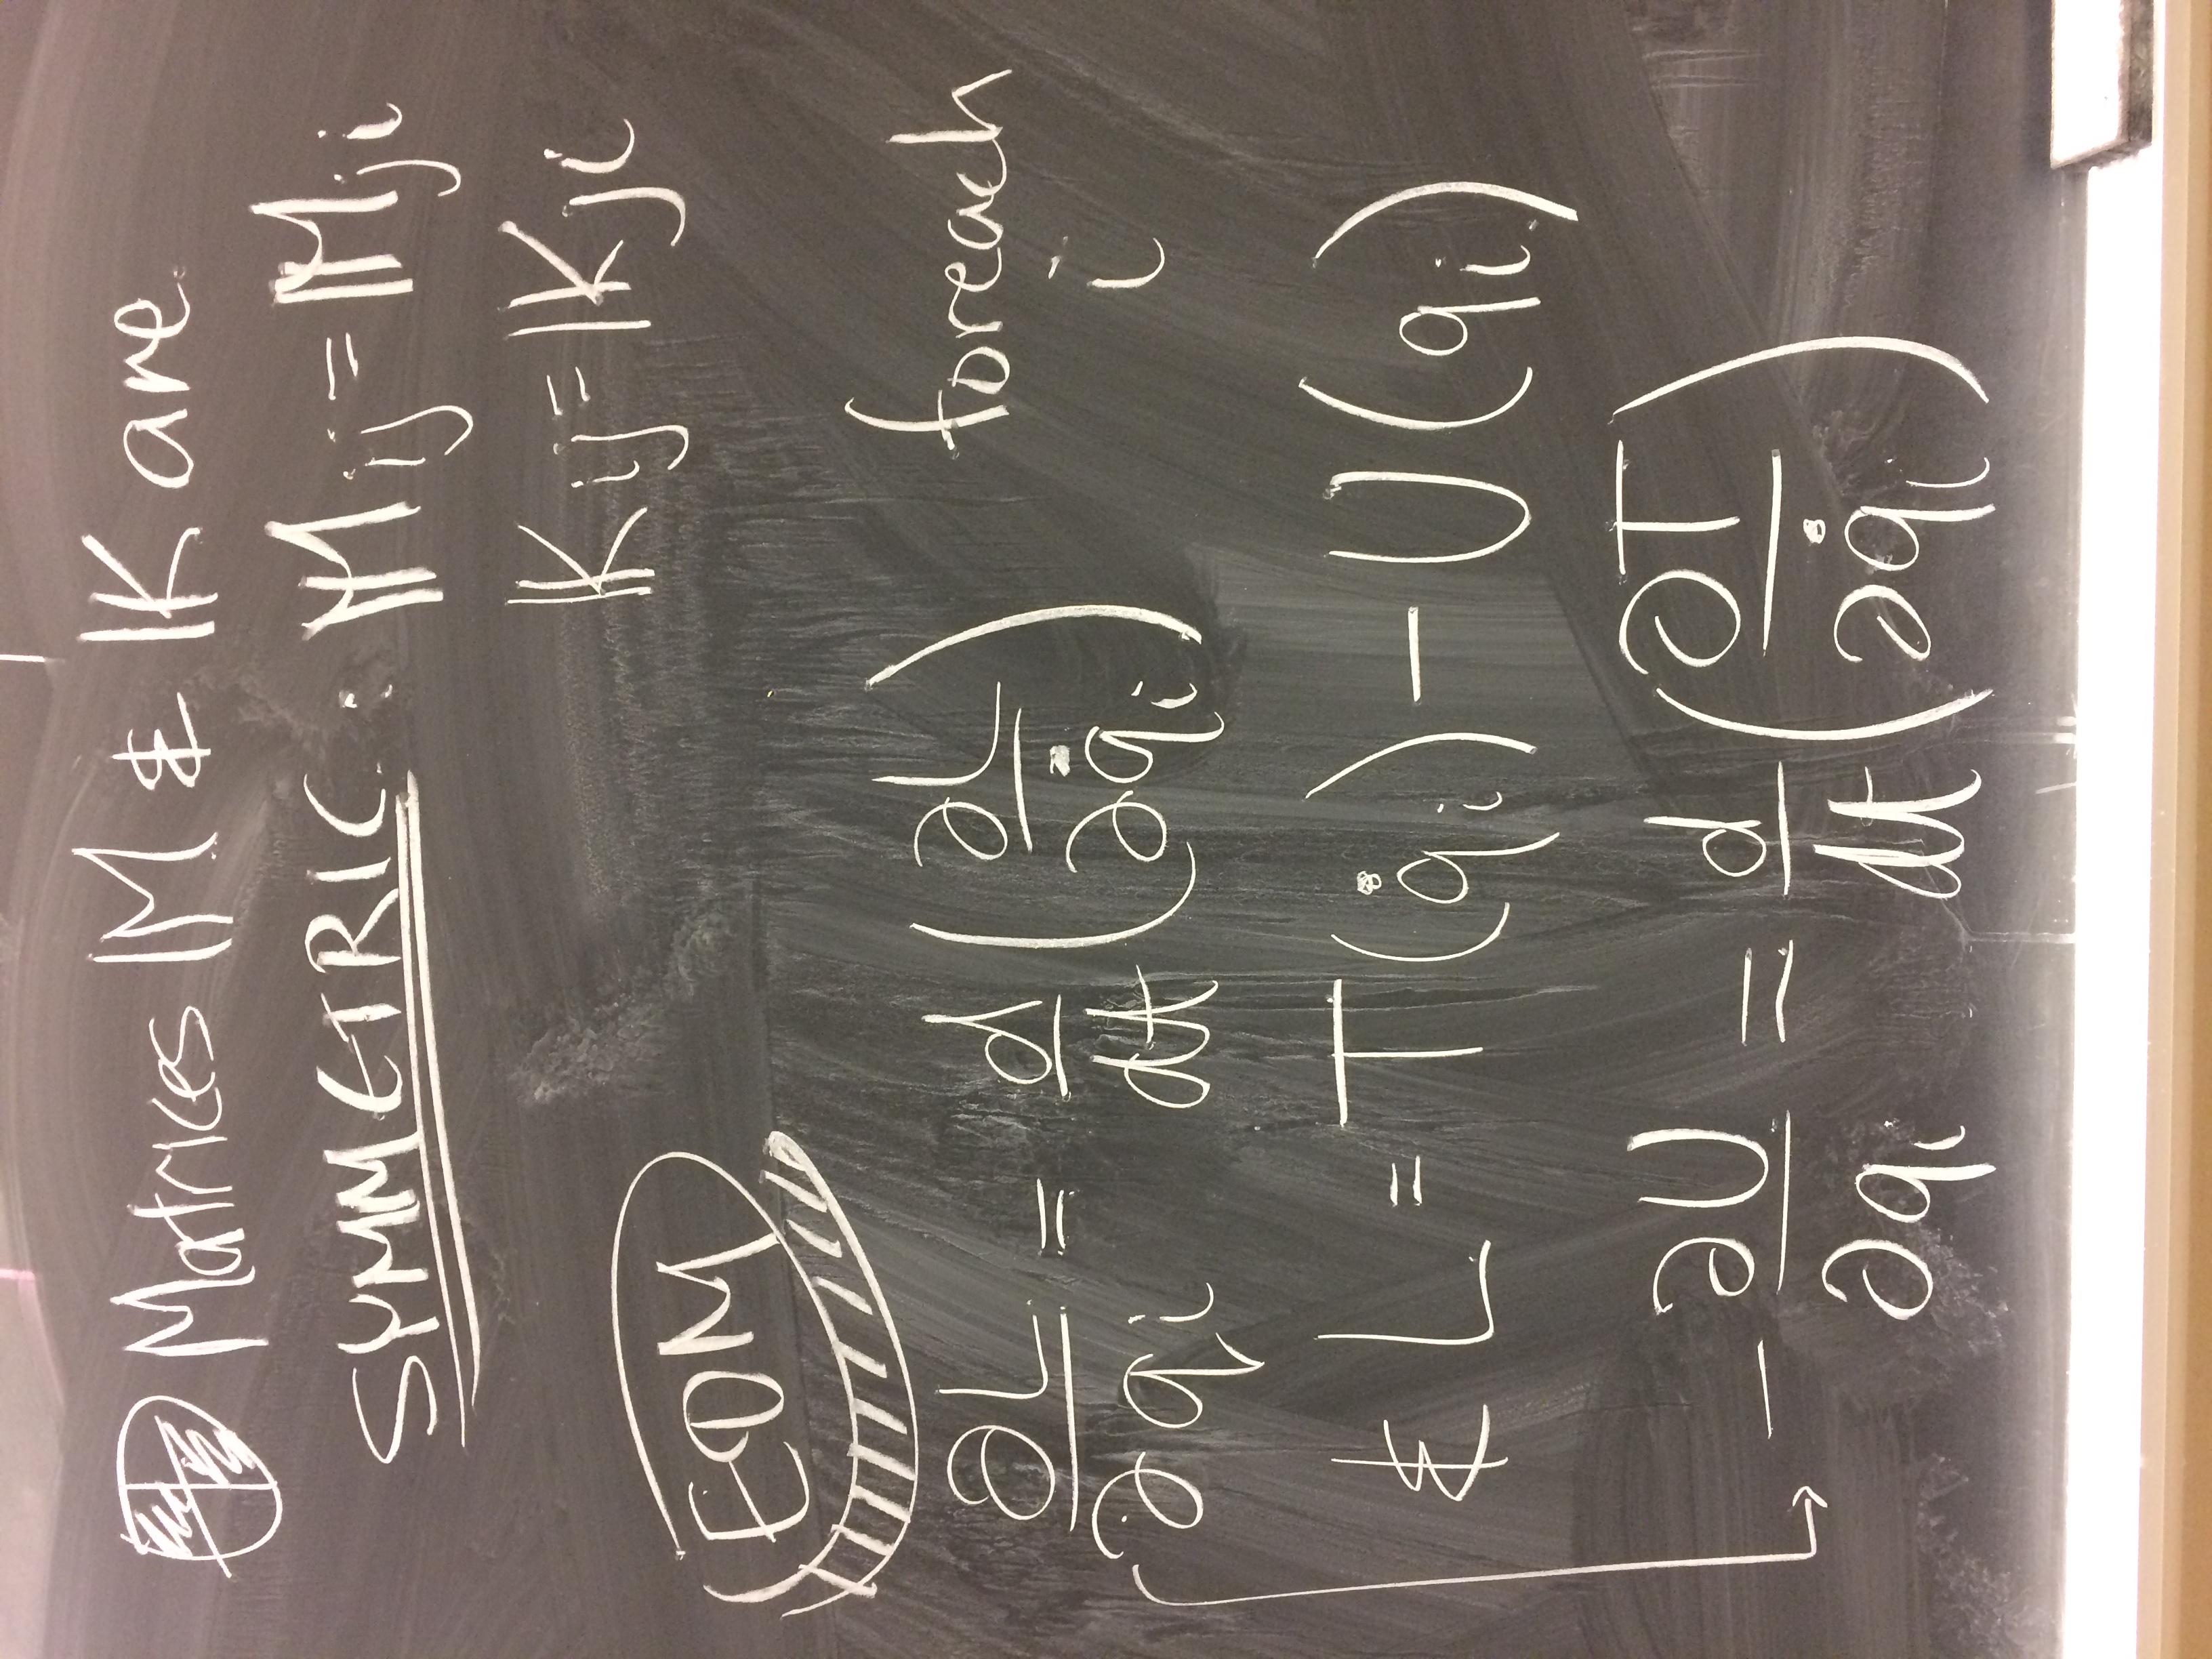 Matrices 𝕄 & 𝕂 are
SYMMETRIC: 𝕄ij = 𝕄ji
𝕂ij = 𝕂ji
EOM
∂L/∂qi = d/dt (∂L/∂q̇i) for each i
& L = T(q̇i) − U(qi)
→ − ∂U/∂qi = d/dt (∂T/∂q̇i)